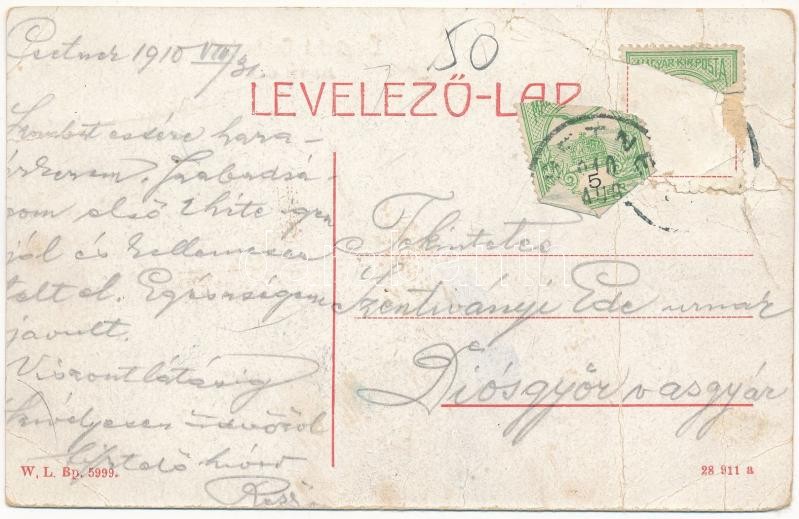 Csetnek 1910 VIII/31.
50
LEVELEZŐ-LAP
MAGYAR KIR. POSTA
5
Szombat estére haza-
érkezem. Szabadsá-
gom első hete igen
jól és kellemesen
telt el. Egészségem
javult.
Viszontlátásig
szívélyesen üdvözöl
Tekintetes
Szentiványi Ede urnak
Diósgyőr vasgyár
W. L. Bp. 5999.
28 911 a